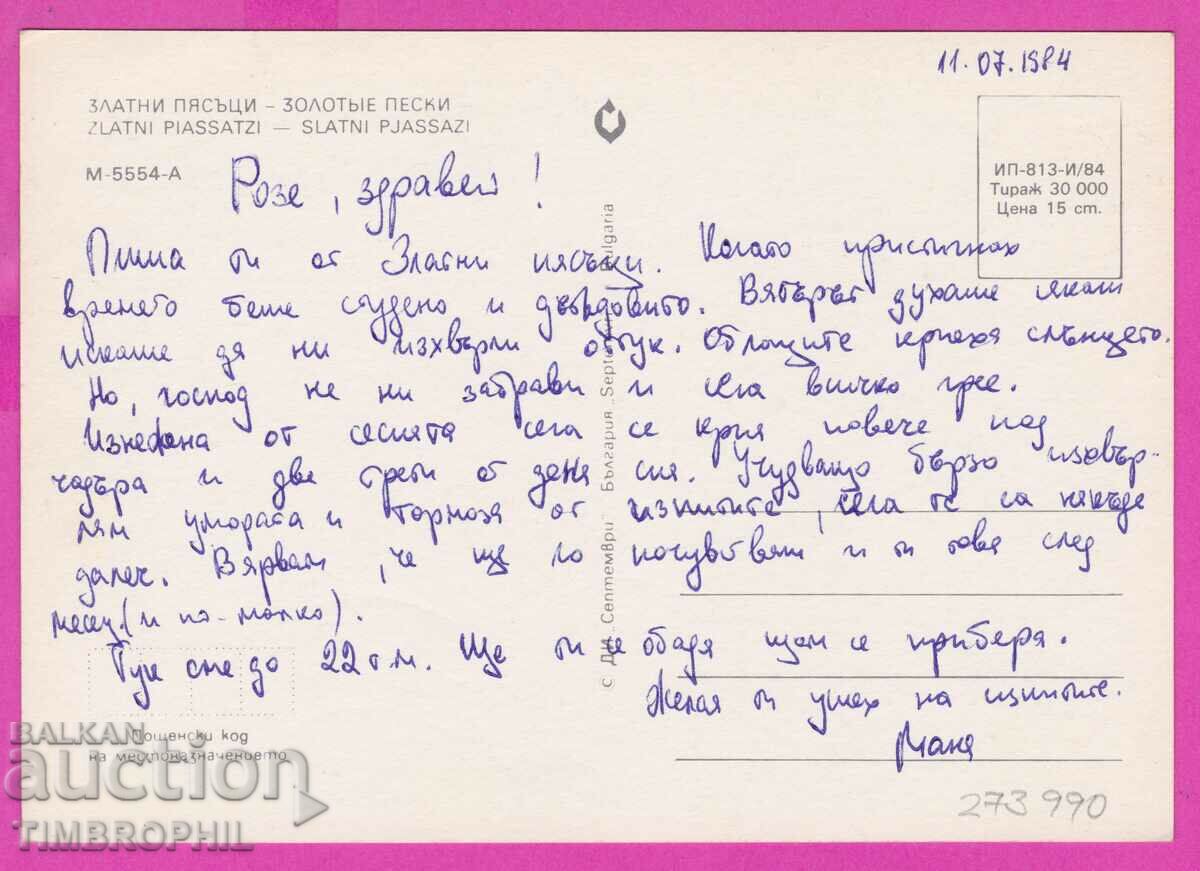 11.07.1984
ЗЛАТНИ ПЯСЪЦИ – ЗОЛОТЫЕ ПЕСКИ
ZLATNI PIASSATZI — SLATNI PJASSAZI
М-5554-А
ИП-813-И/84
Тираж 30 000
Цена 15 ст.
Розе, здравей!
Пиша ти от Златни пясъци. Когато пристигнах
времето беше студено и дъждовито. Вятърът духаше сякаш
искаше да ни изхвърли оттук. Облаците криеха слънцето.
Но, господ не ни забрави и сега всичко грее.
от сесията сега се крия повече под
чадъра и две трети от деня спя. Учудващо бързо изхвър-
лям умората и тормоза от изпитите, сега те са някъде
далеч. Вярвам, че ще го почувстваш и ти това след
месец (и по-малко).
Тук сме до 22 т.м. Ще ти се обадя щом се прибера.
Желая ти успех на изпитите.
Маня
© ДИ „Септември" България „Septemvri" Bulgaria
Пощенски код
на местоназначението
BALKAN
auction
TIMBROPHIL
273 990